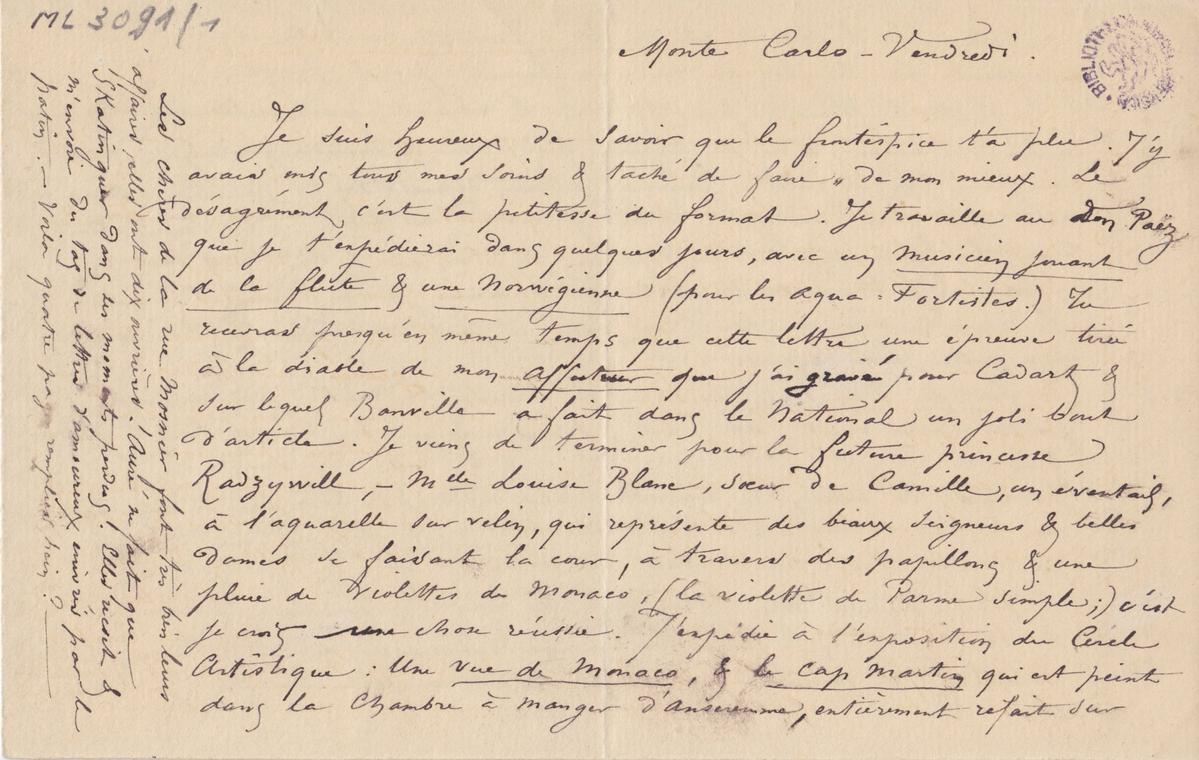 ML 3091/1
Monte Carlo - Vendredi.
BIBLIOTH
Je suis heureux de savoir que le frontispice t'a plu. J'y
avais mis tous mes soins & taché de faire „ de mon mieux. Le
désagrément, c'est la petitesse du format. Je travaille au Don Paëz
que je t'expédierai dans quelques jours, avec un musicien jouant
de la flute & une Norwégienne (pour les Aqua = Fortistes.) Tu
recevras presqu'en même temps que cette lettre une épreuve tirée
à la diable de mon affuteur que j'ai gravé pour Cadart &
sur lequel Banville a fait dans le National un joli bout
d'article. Je viens de terminer pour la future princesse
Radzywill, - Melle Louise Blanc, sœur de Camille, un éventail,
à l'aquarelle sur vélin, qui représente des beaux seigneurs & belles
Dames se faisant la cour, à travers des papillons & une
pluie de Violettes de Monaco, (la violette de Parme simple;) c'est
je crois une chose réussie. J'expédie à l'exposition du Cercle
Artistique : Une vue de Monaco, & le cap Martin qui est peint
dans la Chambre à manger d'Anseremme, entièrement refait sur
Les chères de la rue Mosnier font très bien leurs
affaires, elles ont dix ouvrières. Aure ne fait que
Skatinguer dans ses moments perdus! Elle reçoit &
m'envoie du tas de lettres d'amoureux enivrés par le
patin. — Voilà quatre pages remplies, hein?